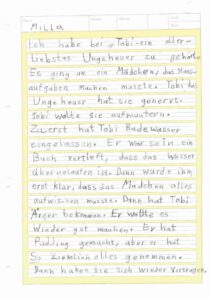 Milla
Ich habe bei „Tobi-ein aller-
liebstes Ungeheuer zu gehört.
Es ging um ein Mädchen, das Haus-
aufgaben machen musste. Tobi das
Ungeheuer hat sie genervt.
Tobi wollte sie aufmuntern.
Zuerst hat Tobi Badewasser
eingelassen. Er war so in ein
Buch vertieft, dass das Wasser
übergelaufen ist. Dann wurde ihm
erst klar, dass das Mädchen alles
aufwischen musste. Dann hat Tobi
Ärger bekommen. Er wollte es
wieder gut machen. Er hat
Pudding gemacht, aber er hat
so ziemlich alles genommen.
Dann haben sie sich wieder vertragen.